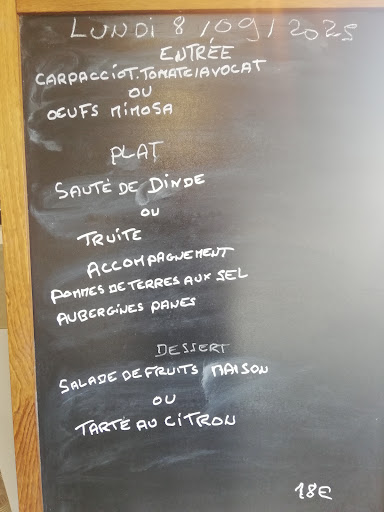 LUNDI 8/09/2025
ENTRÉE
CARPACCIOT.TOMATE/AVOCAT
OU
OEUFS MIMOSA
PLAT
SAUTÉ DE DINDE
OU
TRUITE
ACCOMPAGNEMENT
POMMES DE TERRES AUX SEL
AUBERGINES PANES
DESSERT
SALADE DE FRUITS MAISON
OU
TARTE AU CITRON
18€